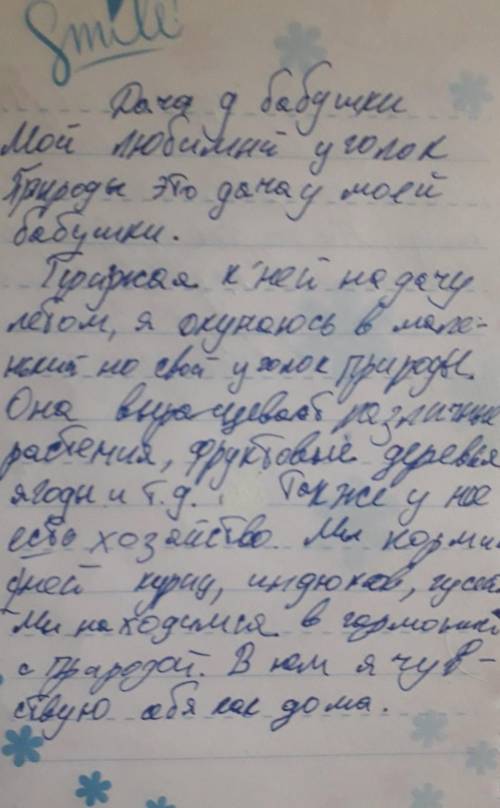 Smile!
Дача у бабушки
Мой любимий уголок
природы это дача у моей
бабушки.
Приежая к ней на дачу
летом, я окунаюсь в мале-
нький но свой уголок природы.
Она выращевает различные
растения, фруктовые деревья
ягоды и т.д. Также у нее
есть хозяйство. Мы корми
с ней куриц, индюков, гусей
Мы находимся в гармонии
с природой. В нем я чув-
ствую себя как дома.